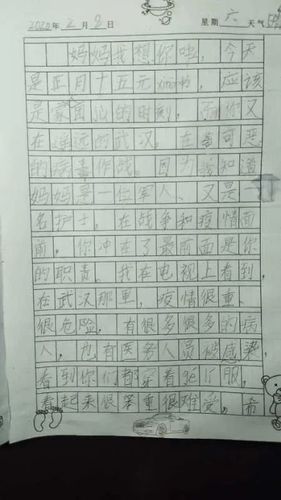 2020年2月8日 星期六 天气
妈妈我想你啦,今天
是正月十五元xiao,应该
是家团圆的时刻,而你又
在遥远的武汉,在与可恶
的病毒作战。因为我知道
妈妈是一位军人、又是一
名护士。在战争和疫情面
前,你冲在了最前面是你
的职责。我在电视上看到,
在武汉那里,疫情很重、
很危险,有很多很多的病
人,也有医务人员被感染,
看到你们都穿着ge li服,
看起来很笨重很难受,希